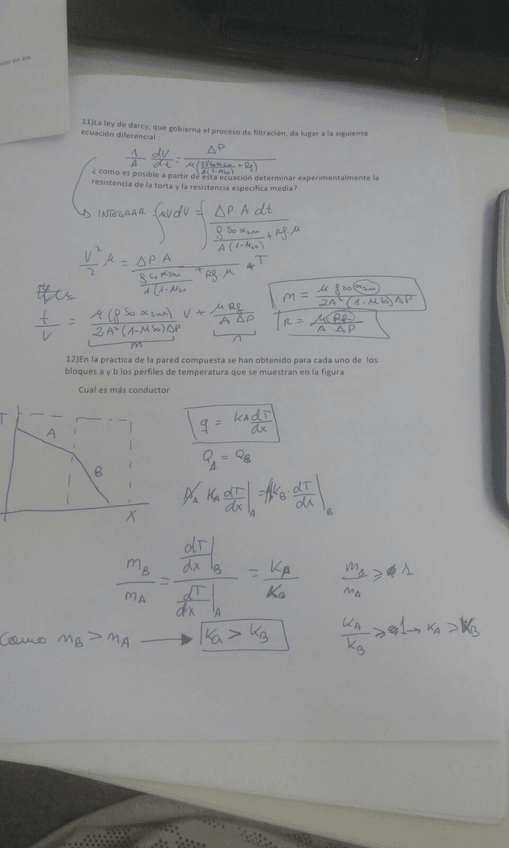 11)La ley de darcy, que gobierna el proceso de filtración, da lugar a la siguiente
ecuación diferencial :
1/A dV/dt = ΔP / μ( + Rf)
A(1-Ms0)
¿ como es posible a partir de esta ecuación determinar experimentalmente la
resistencia de la torta y la resistencia especifica media?
INTEGRAR ∫ μVdV = ∫ ΔP·A dt / (ρ S0 αsm / A(1-Ms0) + Rf·μ)
V²/2 μ = ΔP·A / (ρ S0 αsm / A(1-Ms0) + Rf·μ) * T
t/V = μ(ρ S0 αsm) / 2A²(1-Ms0)ΔP V + μ Rf / A ΔP
m n
m = μ ρ S0 αsm / 2A²(1-Ms0)ΔP
n = μ Rf / A·ΔP
12)En la practica de la pared compuesta se han obtenido para cada uno de los
bloques a y b los perfiles de temperatura que se muestran en la figura
Cual es más conductor
T
A
B
X
q = kA dT/dx
QA = QB
AA KA dT/dx |A = A KB · dT/dx |B
mB/mA = dT/dx |B / dT/dx |A = kA/kB
mB/mA > 1
Como mB > mA → ka > kB
kA/kB > 1 → kA > kB